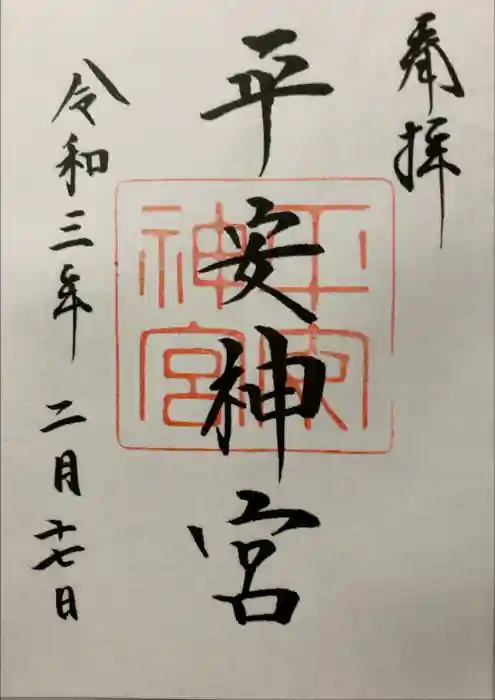 奉拝
平安神宮
平安
神宮
令和三年二月十七日